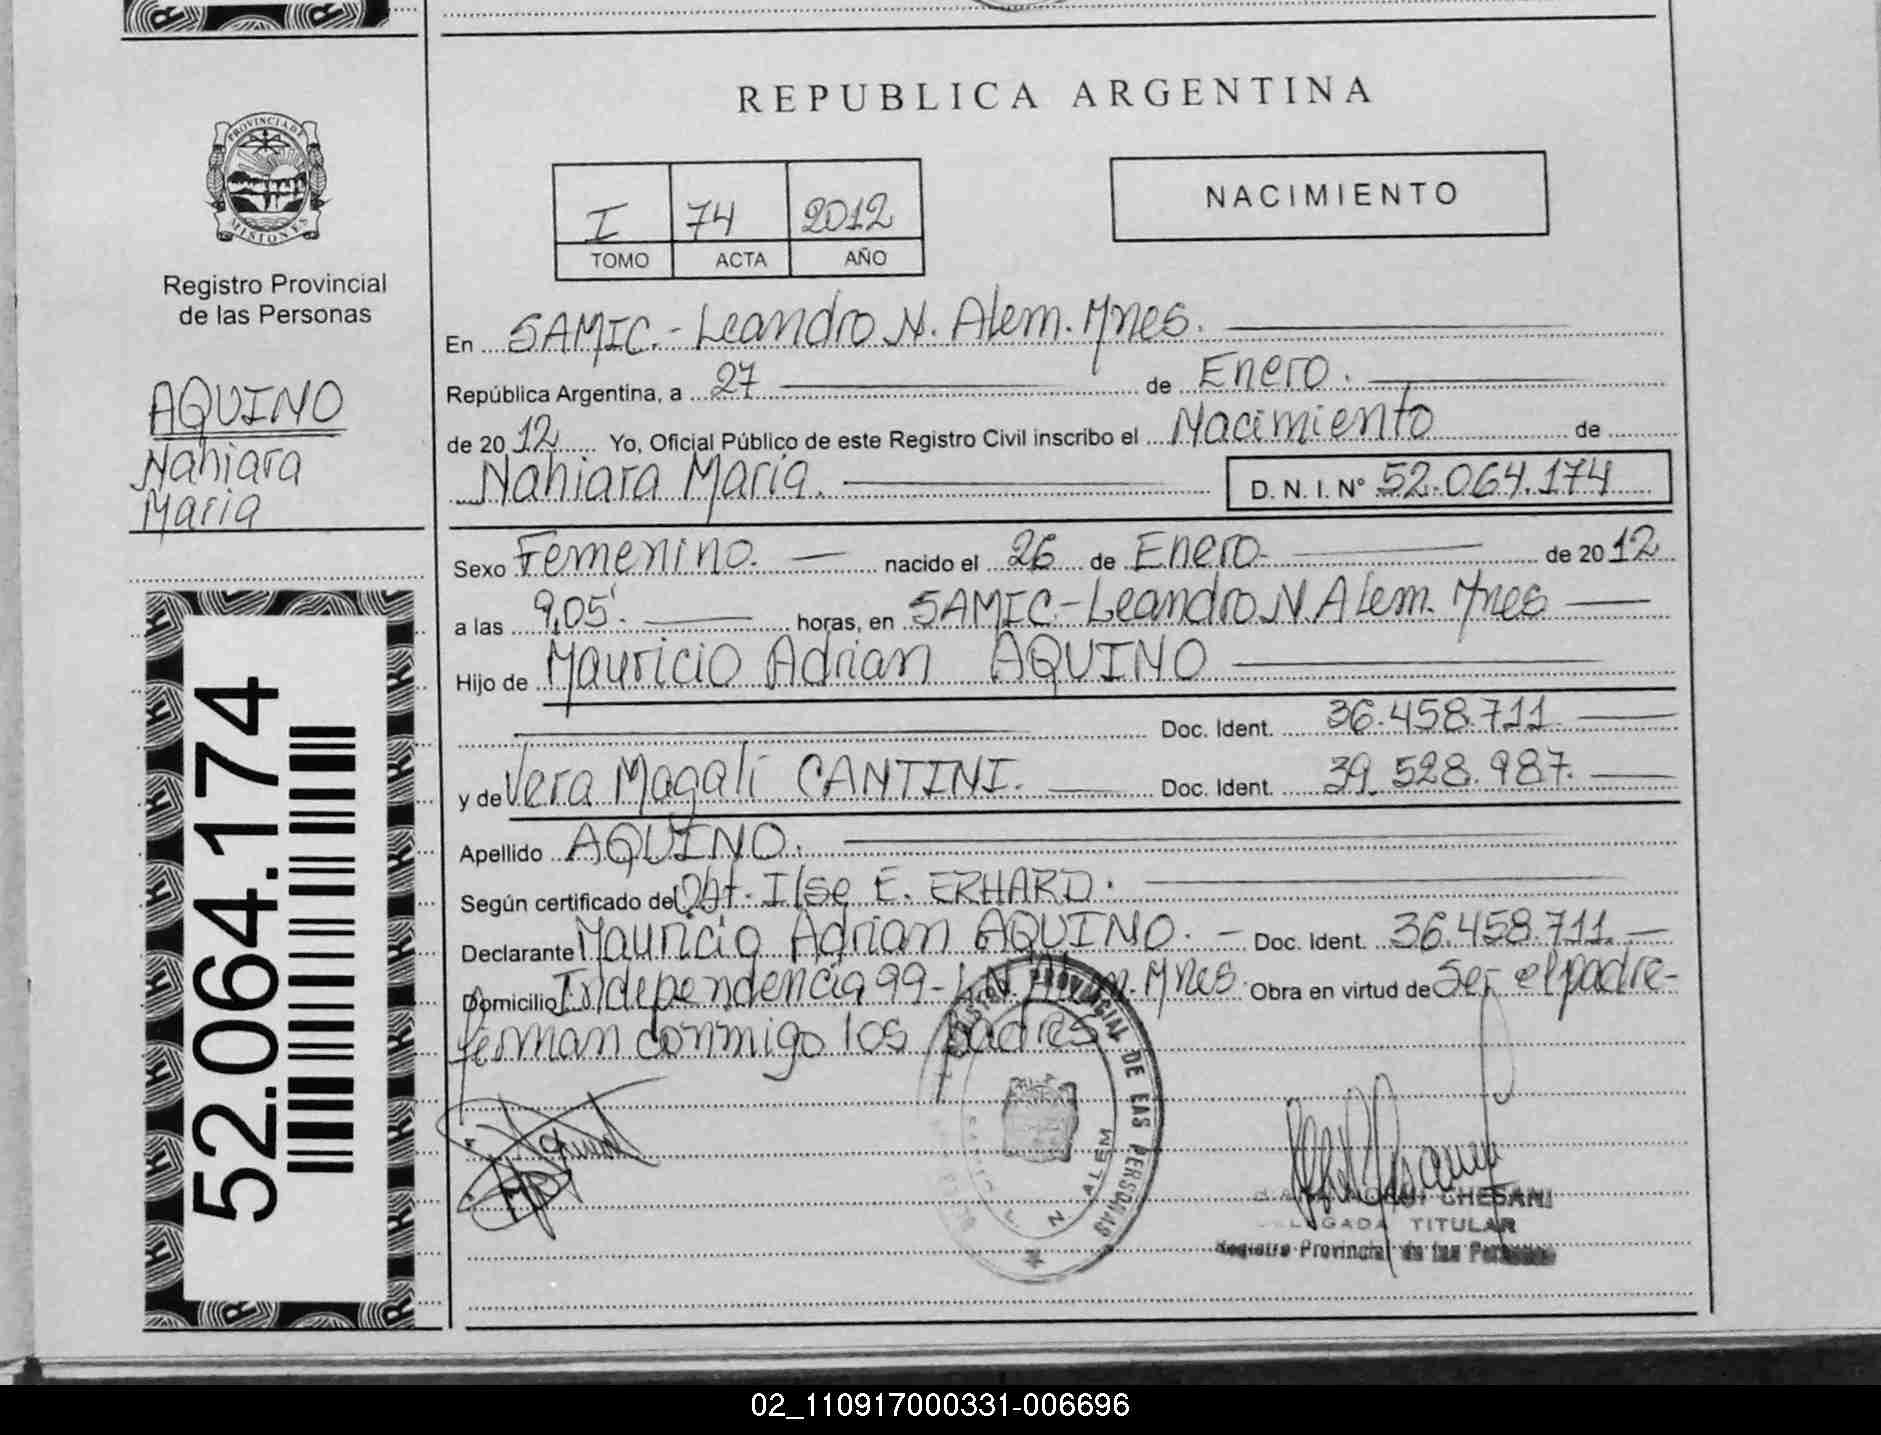 REPUBLICA ARGENTINA
PROVINCIA DE MISIONES
Registro Provincial
de las Personas
AQUINO
Nahiara
Maria
52.064.174
I 74 2012
TOMO ACTA AÑO
NACIMIENTO
En SAMIC.- Leandro N. Alem. Mnes.
República Argentina, a 27 de Enero.
de 2012 Yo, Oficial Público de este Registro Civil inscribo el Nacimiento de
Nahiara María. D. N. I. N° 52.064.174
Sexo Femenino. nacido el 26 de Enero- de 2012
a las 9,05'. horas, en SAMIC.-Leandro N. Alem. Mnes
Hijo de Mauricio Adrian AQUINO
Doc. Ident. 36.458.711
y de Vera Magali CANTINI. Doc. Ident. 39.528.987.
Apellido AQUINO.
Según certificado de Obt. Ilse E. ERHARD.
Declarante Mauricio Adrian AQUINO. - Doc. Ident. 36.458.711.
Domicilio Independencia 99- L.N. Alem. Mnes. Obra en virtud de Ser el padre-
firman conmigo los padres
PROVINCIAL DE LAS PERSONAS
N ALEM
CHESANI
TITULAR
Registro Provincial de las Personas
02_110917000331-006696